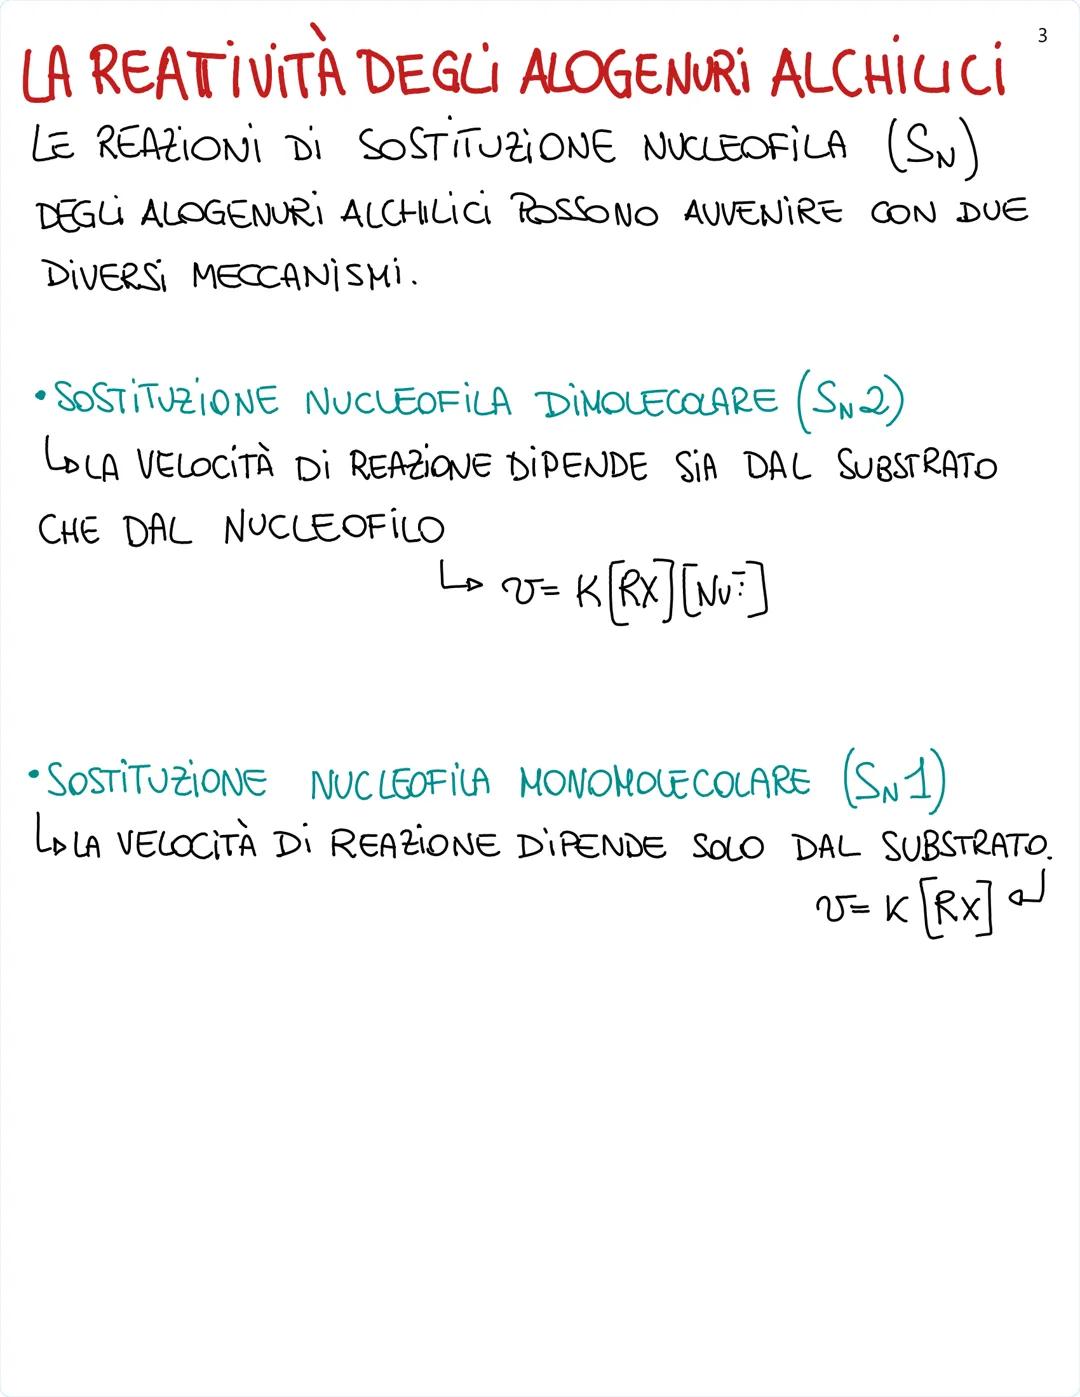 3
LA REATTIVITÀ DEGLI ALOGENURI ALCHILICI
LE REAZIONI DI SOSTITUZIONE NUCLEOFILA (SN)
DEGLI ALOGENURI ALCHILICI POSSONO AVVENIRE CON DUE
DIVERSI MECCANISMI.
• SOSTITUZIONE NUCLEOFILA DIMOLECOLARE (SN2)
↳ LA VELOCITÀ DI REAZIONE DIPENDE SIA DAL SUBSTRATO
CHE DAL NUCLEOFILO
↳ v= K[RX][Nu:⁻]
• SOSTITUZIONE NUCLEOFILA MONOMOLECOLARE (SN1)
↳ LA VELOCITÀ DI REAZIONE DIPENDE SOLO DAL SUBSTRATO.
v= K[RX] ↵